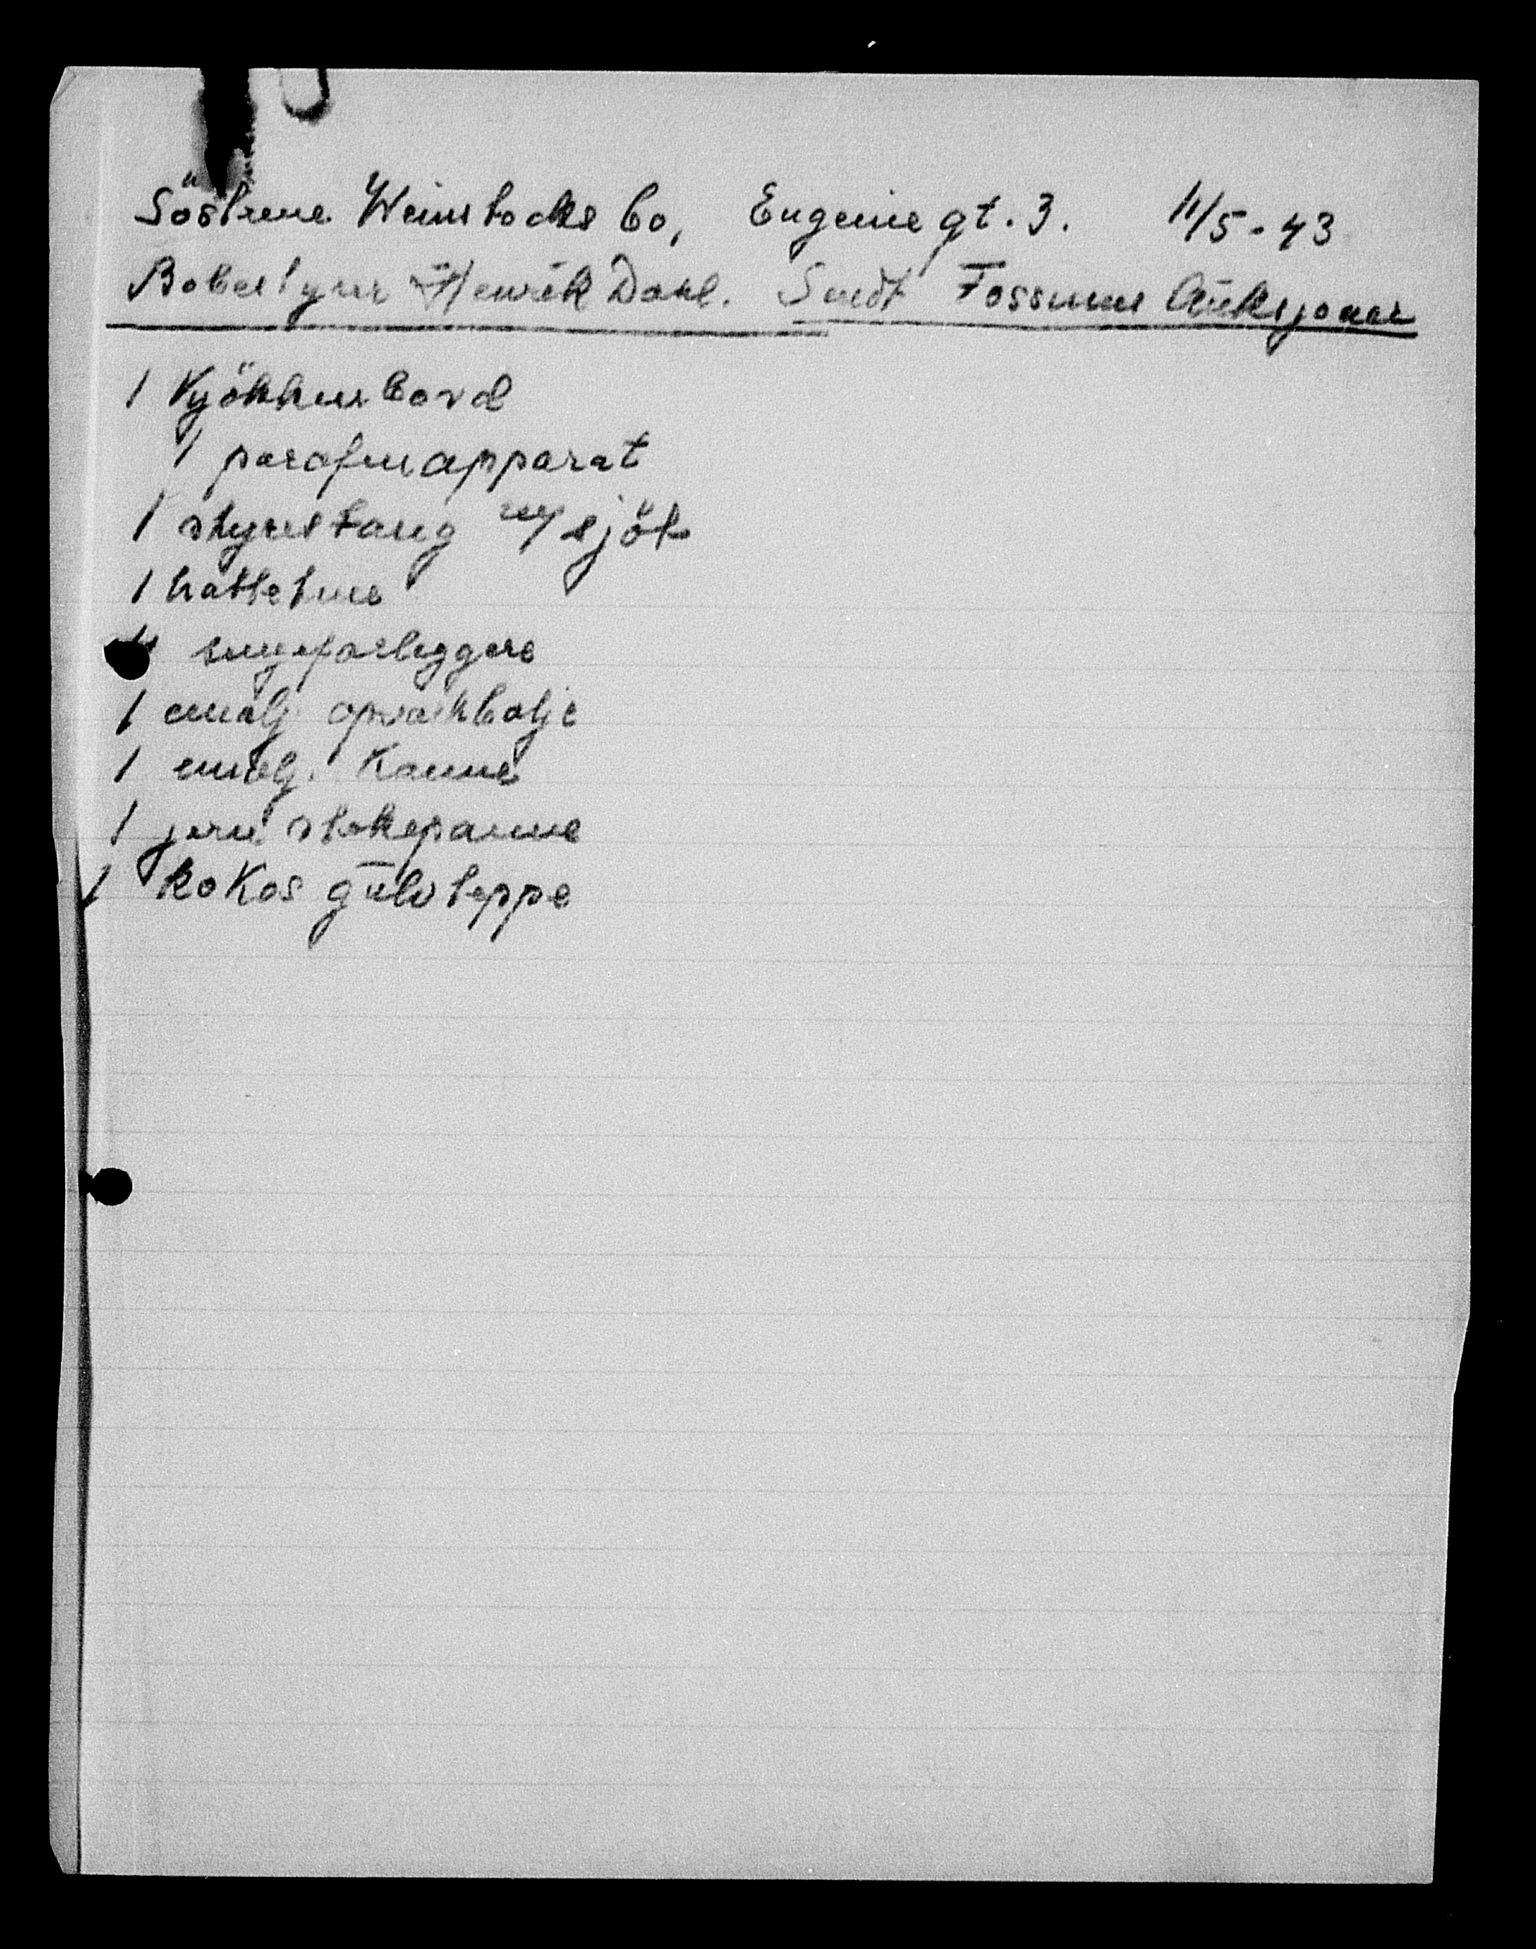 Söstrene Weinstocks bo, Eugenie gt. 3. 11/5-43
Bobestyrer Henrik Dahl. Sendt Fossums Auksjoner
1 Kjökkenbord
1 parafinapparat
1 styrestang m/ sjöt
1 hatteteine
4 sengeforleggere
1 emalj. opvaskbalje
1 emalj. Kanne
1 jern stekepanne
1 kokos gulvteppe